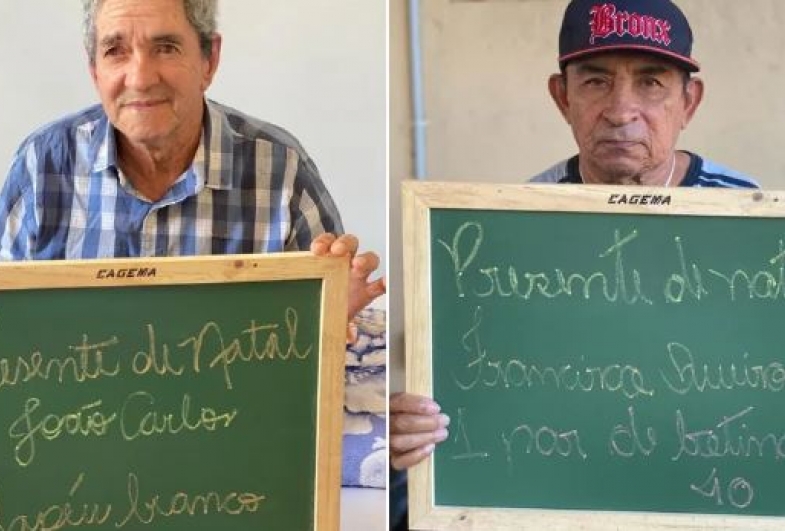 CAGEMA
esente de Natal
João Carlos
hapéu branco
Bronx
CAGEMA
Presente de nat
Francisco Queiro
1 par de botina
40